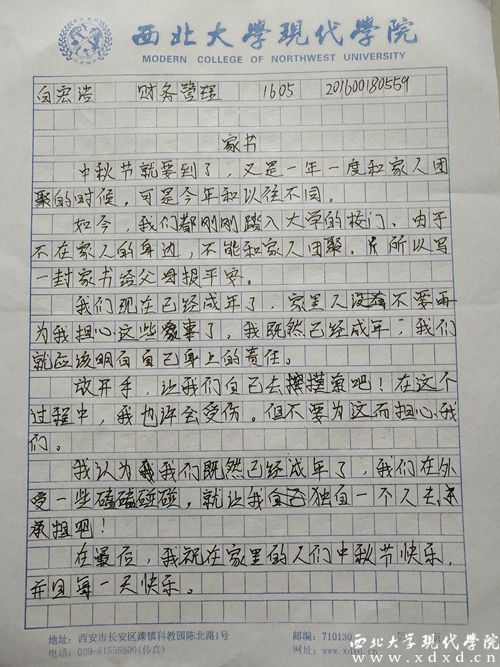 西北大学现代学院
MODERN COLLEGE OF NORTHWEST UNIVERSITY
白宏浩 财务管理 1605 201600180559
家书
中秋节就要到了，又是一年一度和家人团
聚的时候，可是今年和以往不同。
如今，我们都刚刚踏入大学的校门、由于
不在家人的身边，不能和家人团聚。所以写
一封家书给父母报平安。
我们现在已经成年了，家里人没有不要再
为我担心这些事了。我既然已经成年，我们
就应该明白自己身上的责任。
放开手，让我们自己去摸索吧！在这个
过程中，我也许会受伤。但不要为这而担心我
们。
我认为我们既然已经成年了，我们在外
受一些磕磕碰碰，就让我独自一个人去
承担吧！
在最后，我祝在家里的人们中秋节快乐，
并且每一天快乐。
地址：西安市长安区滦镇科教园陈北路1号 邮编：710130
电话：029-81555800(传真) 网址：www.xdxd.cn
西北大学现代学院
www.xdxd.cn